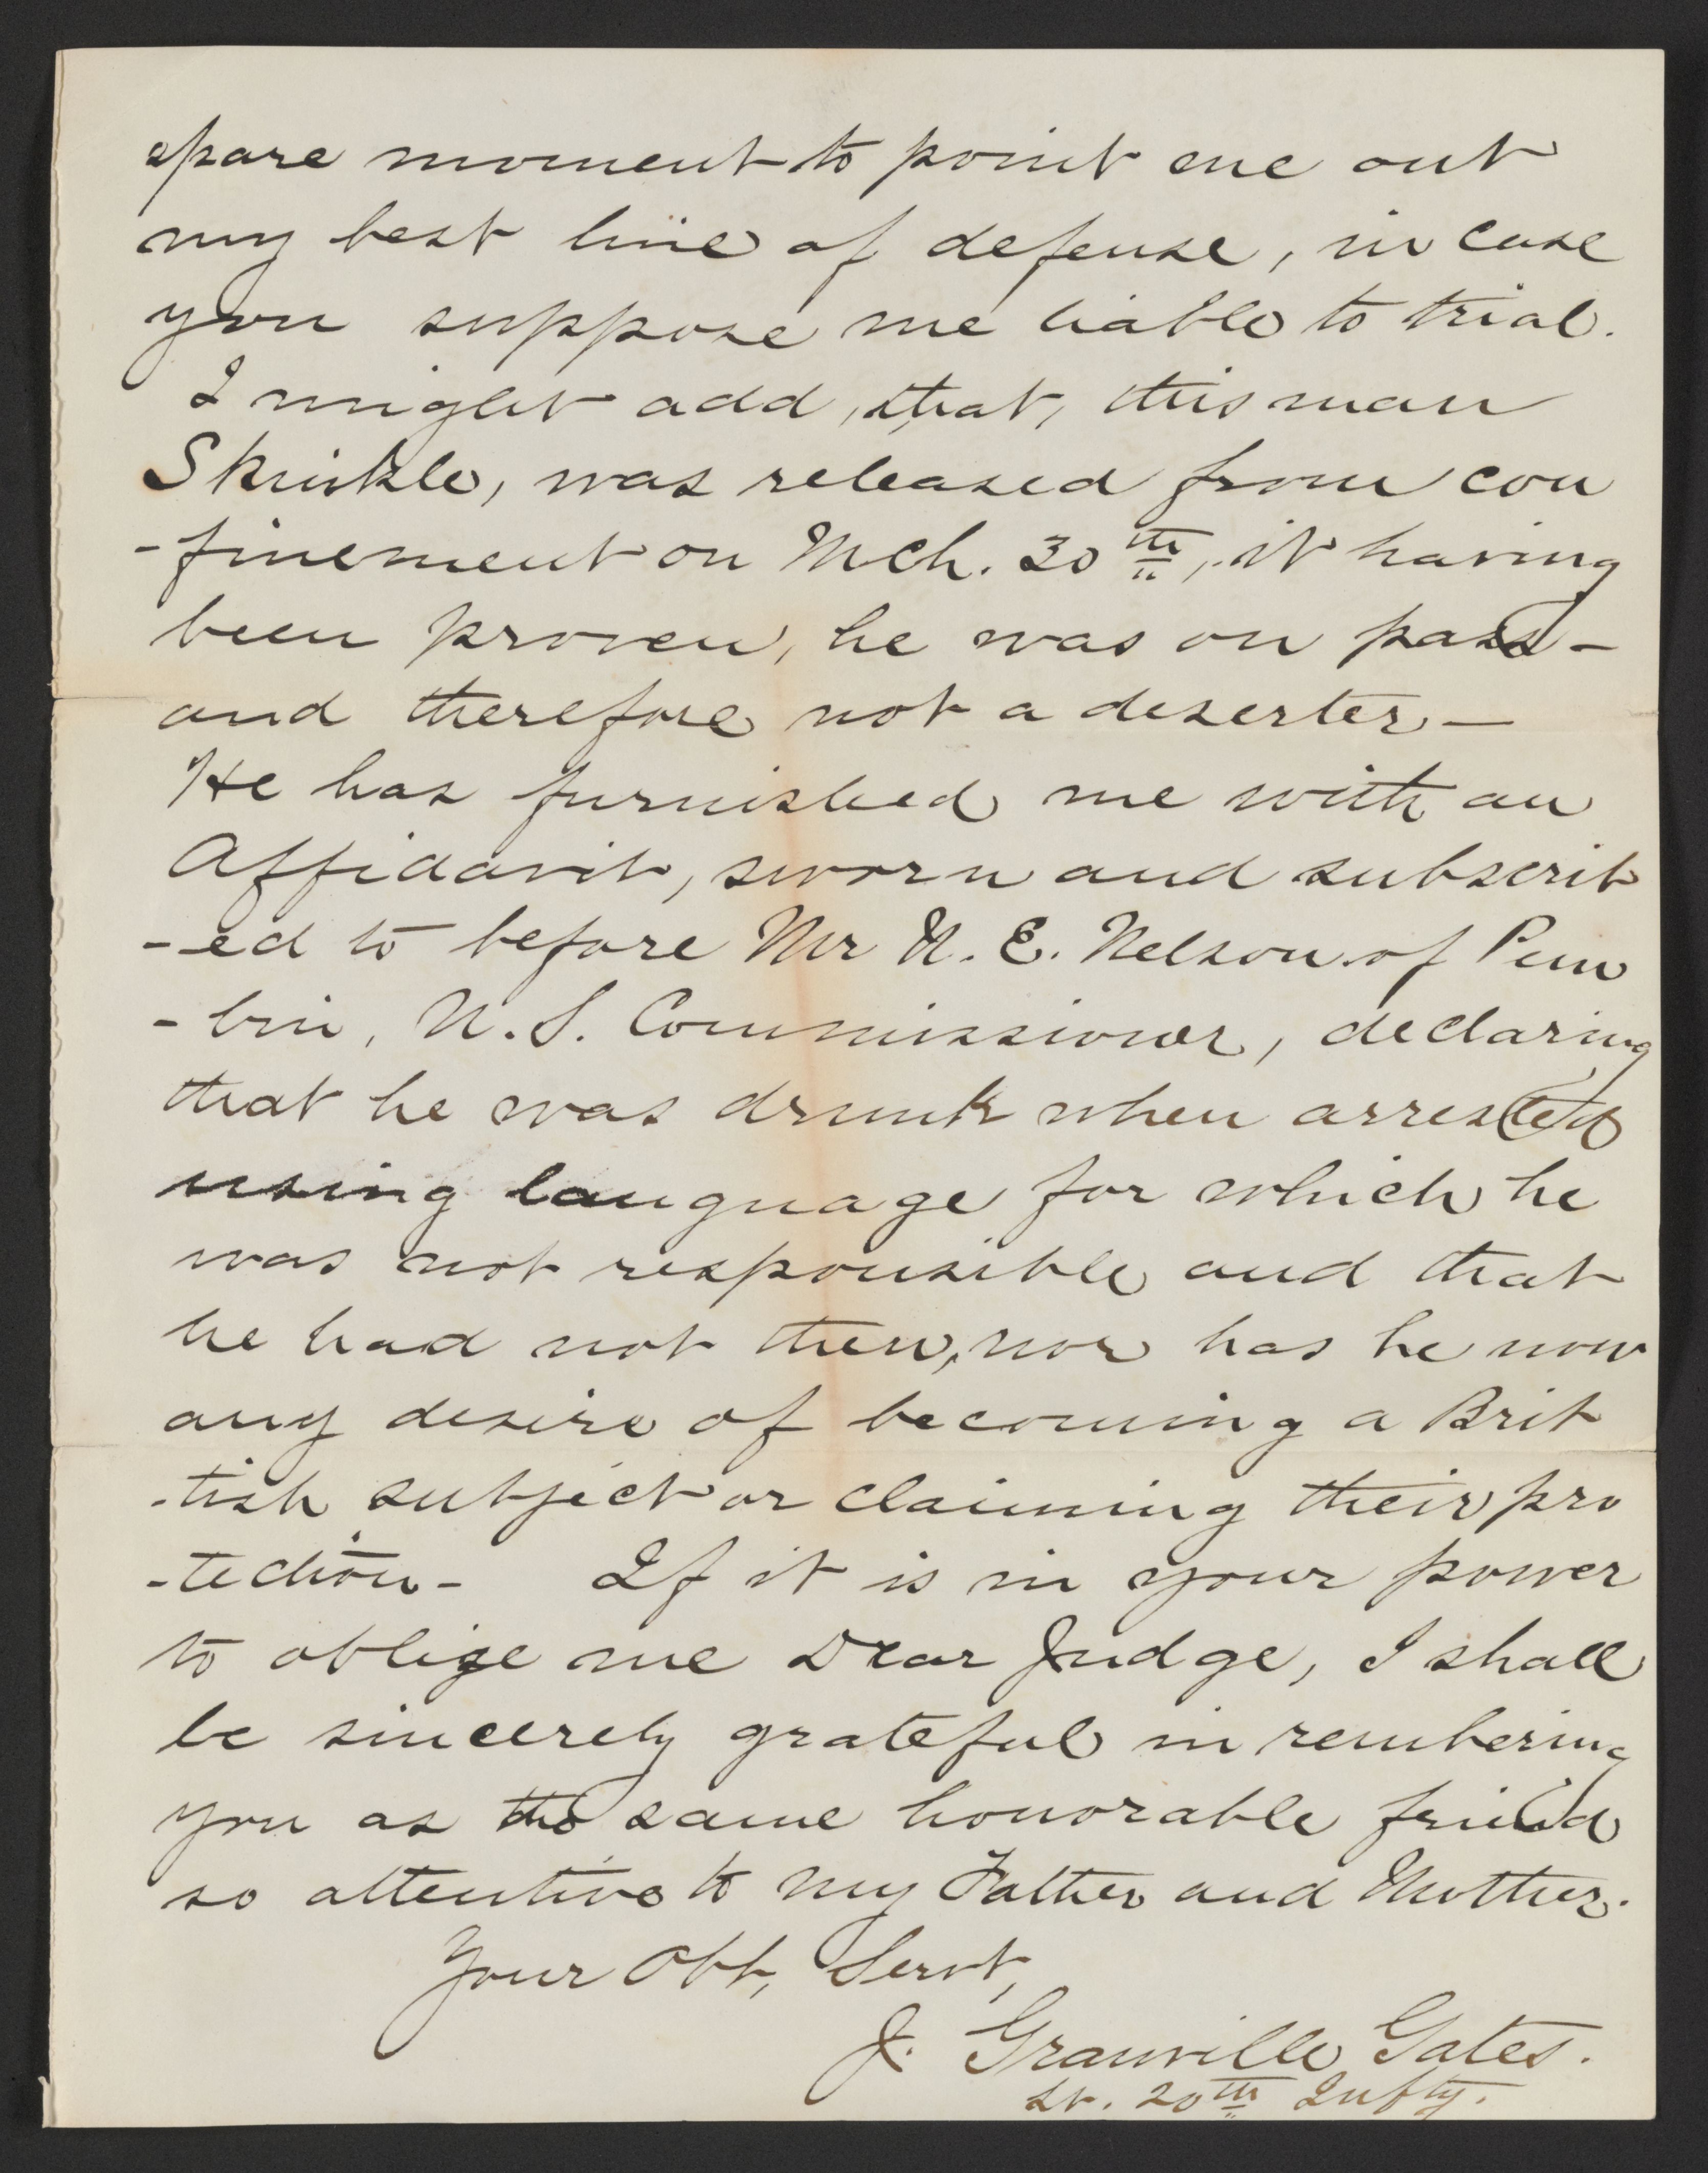 spare moment to point me out
my best line of defense, in case
you suppose me liable to trial.
I might add, that, this man
Skinkle, was released from con
-finement on Mch. 30th, it having
been proven, he was on pass -
and therefore not a deserter, —
He has furnished me with an
Affidavit, sworn and subscrib
-ed to before Mr N. E. Nelson of Pem
-bin, U.S. Commissioner, declaring
that he was drunk when arrested
using language for which he
was not responsible and that
he had not then, nor has he now
any desire of becoming a Brit
-tish subject or claiming their pro
-tection - If it is in your power
to oblige me Dear Judge, I shall
be sincerely grateful in rembering
you as the same honorable friend
so attentive to my Father and Mother.
Your Obt, Servt,
J. Granville Gates.
Lt. 20th Infty.